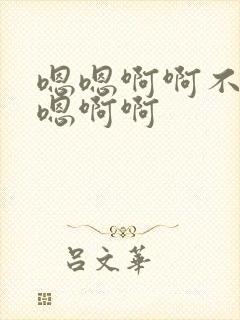 嗯嗯啊啊不
嗯啊啊
吕文华